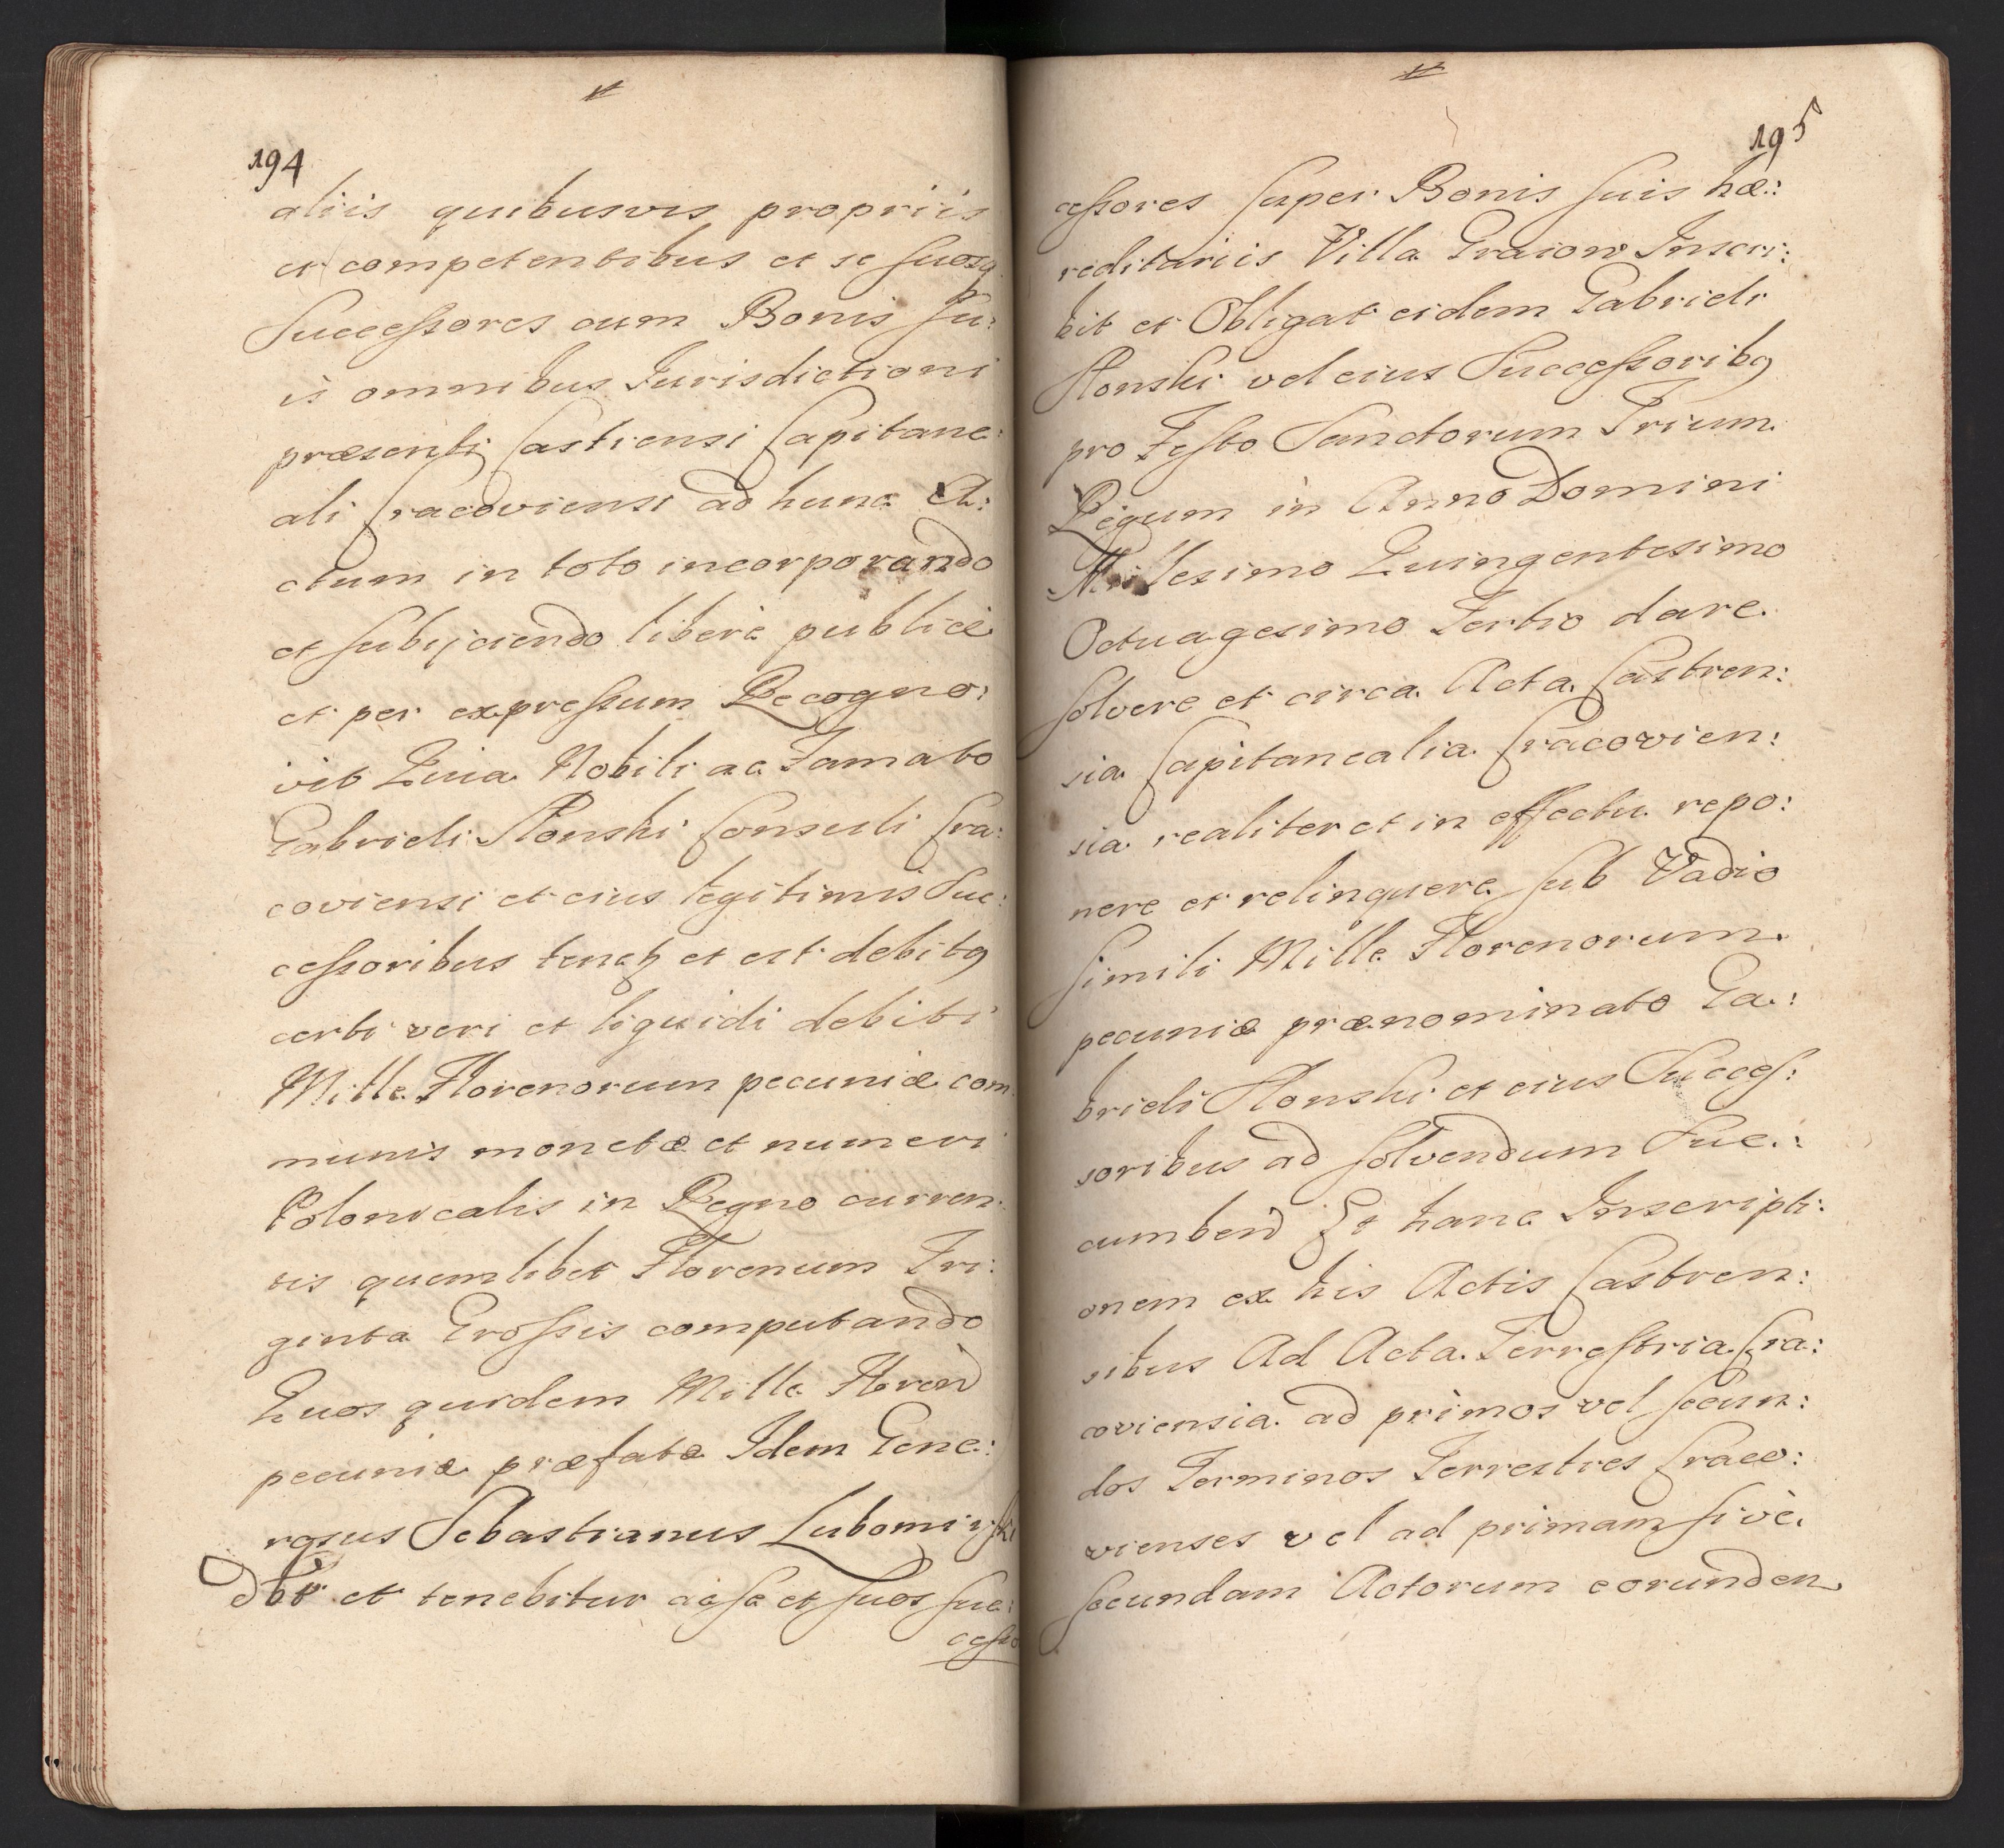 194
aliis quibusvis propriis
et competentibus et se suosq
Successores cum Bonis su:
is omnibus Jurisdictioni
præsenti Castrensi Capitane:
ali Cracoviensi ad hunc A:
ctum in toto incorporando
et subijciendo liberè publicè
et per expressum Recogno:
vit Quia Nobili ac Famato
Gabrieli Słonski Consuli Cra:
coviensi et eius legitimis Suc:
cessoribus tenet et est debitq
certi veri et liquidi debiti
Mille Florenorum pecuniæ com
munis monetæ et numeri
Polonicalis in Regno curren:
tis quemlibet Florenum Tri:
ginta Grossis computando
Quos quidem Mille Floren
pecuniæ præfatæ Idem Gene:
rosus Sebastianus Lubomirski
debt et tenebitur ac se et suos suc:
cesso
195
cessores super Bonis suis hæ:
reditariis Villa Graiow Inscri:
bit et Obligat eidem Gabrieli
Słonski vel eius Successoribq
pro Festo Sanctorum Trium
Regum in Anno Domini
Millesimo Quingentesimo
Octuagesimo Tertio dare
solvere et circa Acta Castren:
sia Capitanealia Cracovien:
sia realiter et in effectu repo:
nere et relinquere sub Vadio
simili Mille Florenorum
pecuniæ prænominato Ga:
brieli Słonski et eius Succes:
soribus ad solvendum Suc:
cumben Et hanc Inscripti:
onem ex his Actis Castren:
sibus Ad Acta Terrestria Cra:
coviensia ad primos vel secun:
dos Terminos Terrestres Craco:
vienses vel ad primam sivè
secundam Actorum eorunden